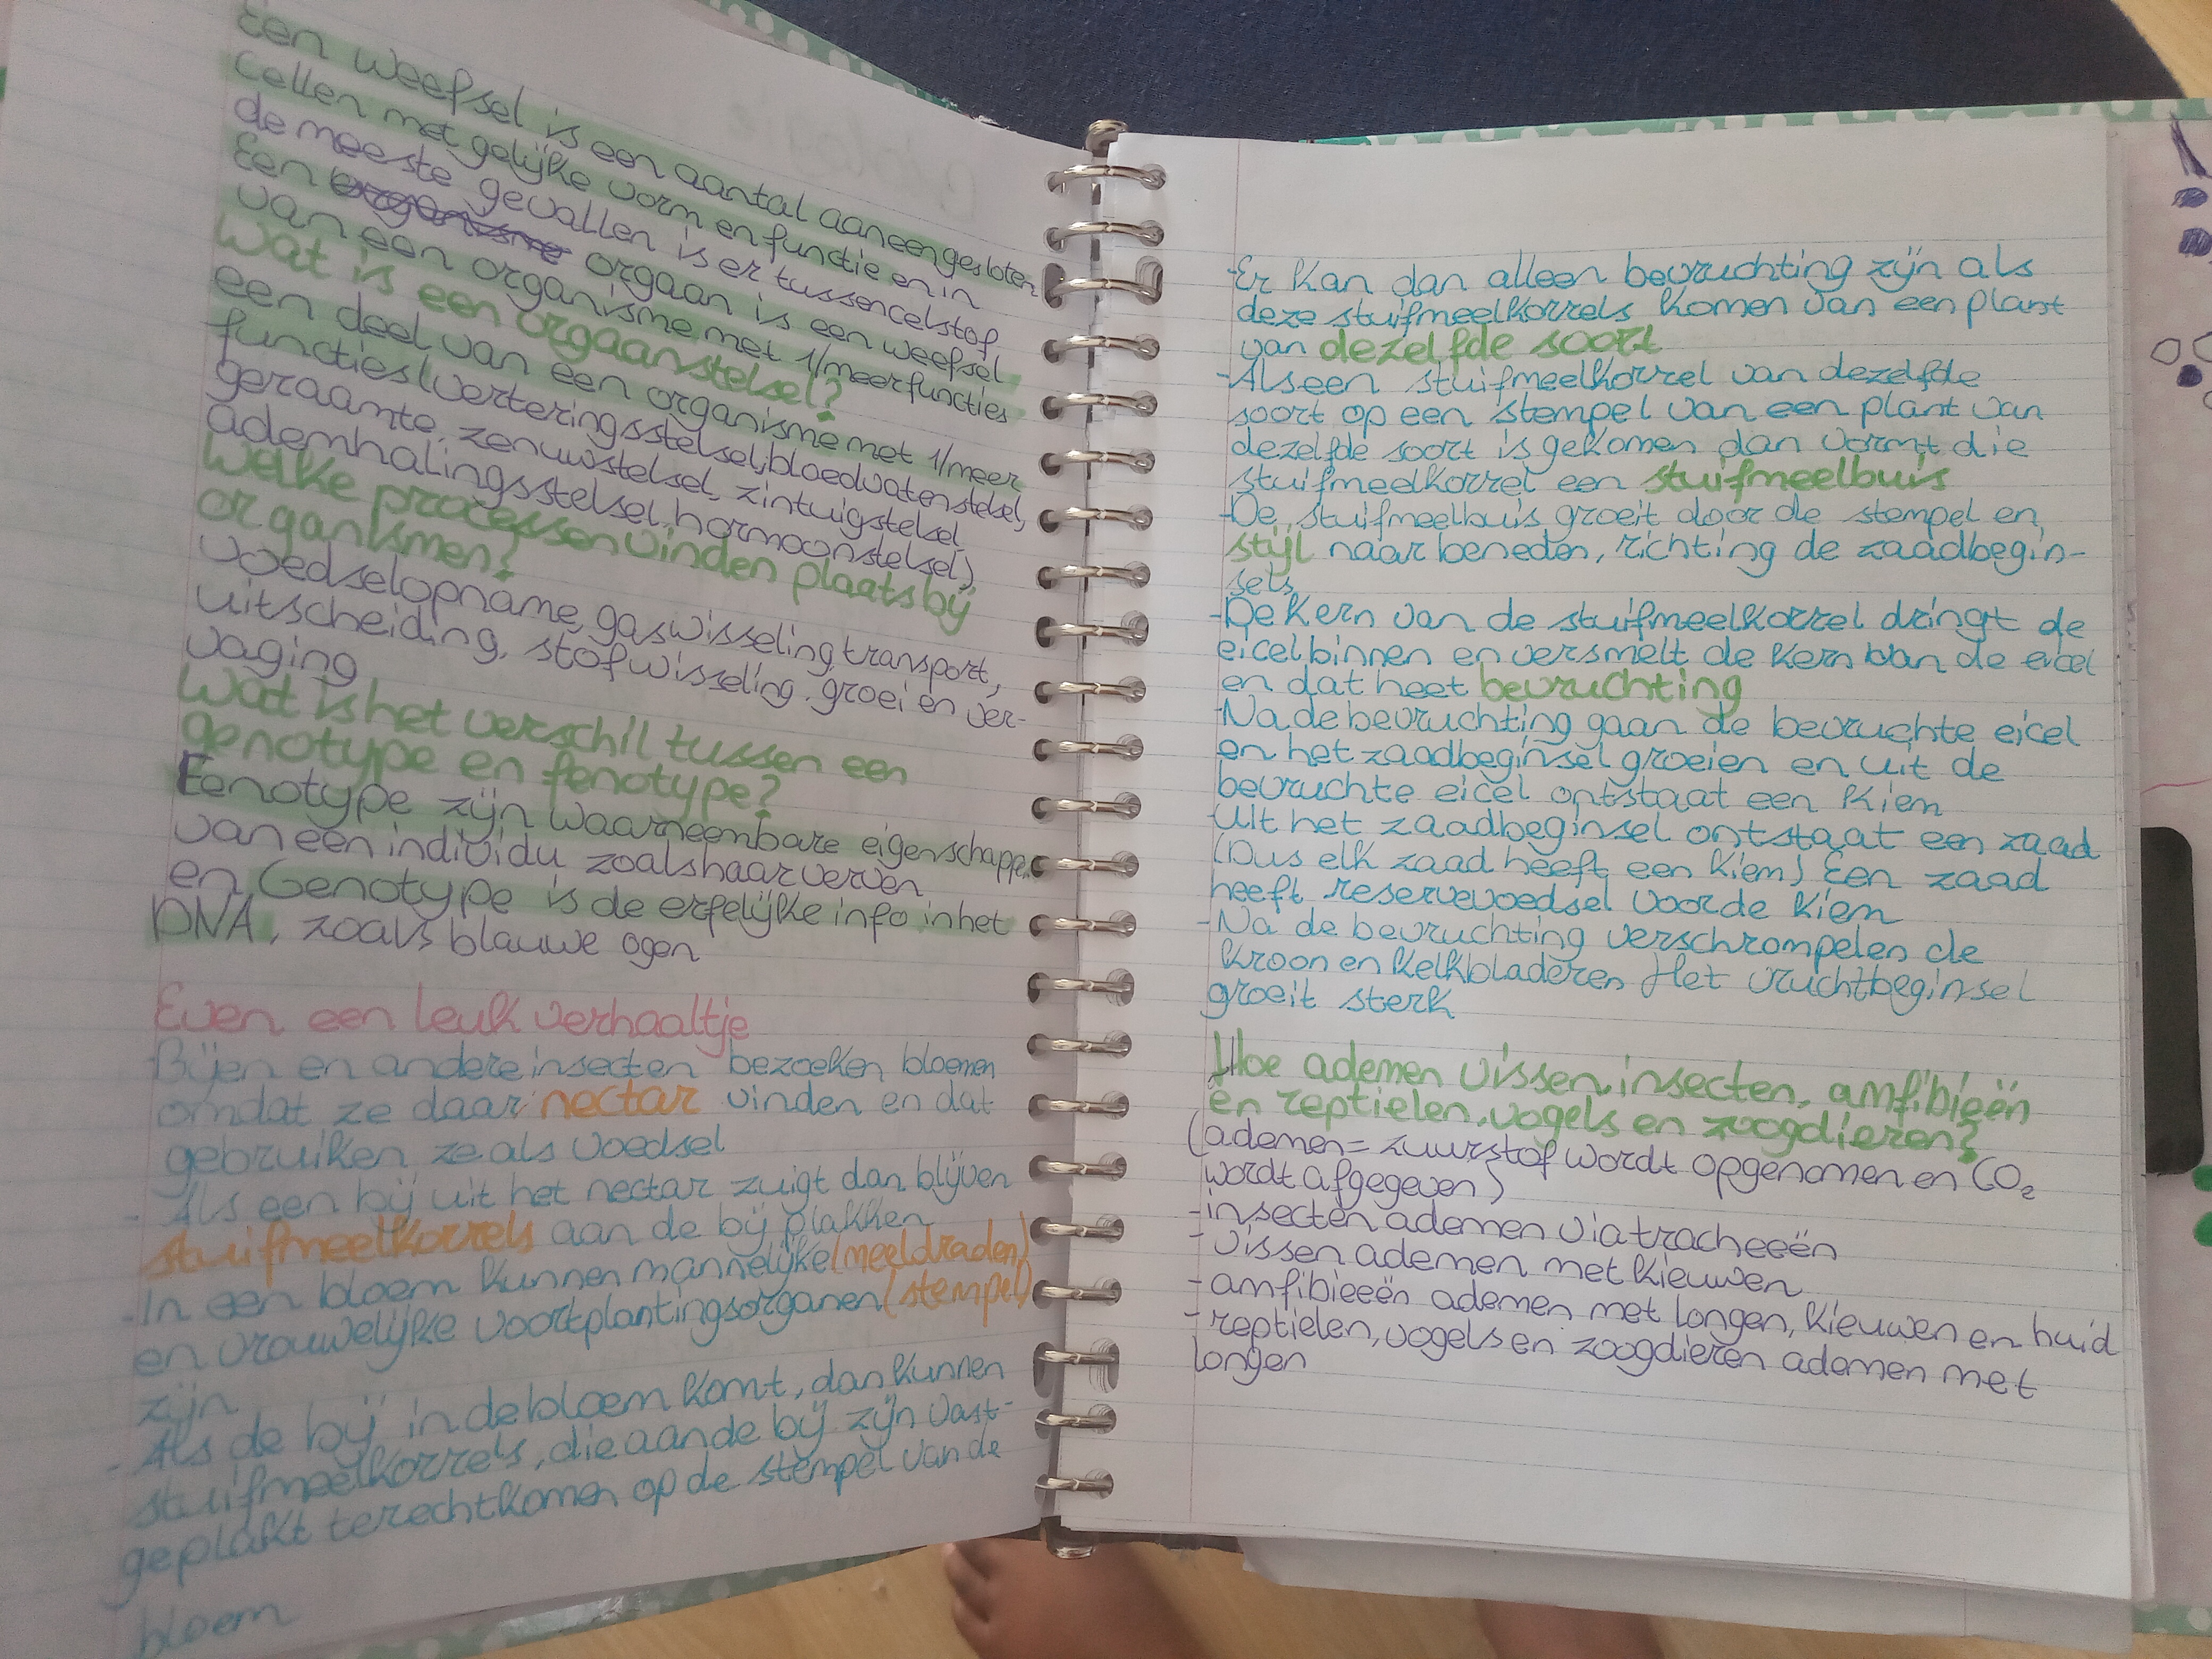 Een weefsel is een aantal aaneengesloten
cellen met gelijke vorm en functie en in
de meeste gevallen is er tussencelstof
Een organisme orgaan is een weefsel
van een organisme met 1/meer functies
Wat is een orgaanstelsel?
een deel van een organisme met 1/meer
functies (verteringsstelsel, bloedvatenstelsel,
geraamte, zenuwstelsel, zintuigstelsel
ademhalingsstelsel, hormoonstelsel)
Welke processen vinden plaats bij
organismen?
voedselopname, gaswisseling, transport,
uitscheiding, stofwisseling, groei en ver-
vaging
Wat is het verschil tussen een
genotype en fenotype?
Fenotype zijn waarneembare eigenschappen
van een individu zoals haarverven
en Genotype is de erfelijke info in het
DNA, zoals blauwe ogen
Even een leuk verhaaltje
-Bijen en andere insecten bezoeken bloemen
omdat ze daar nectar vinden en dat
gebruiken ze als voedsel
- Als een bij uit het nectar zuigt dan blijven
stuifmeelkorrels aan de bij plakken
-In een bloem kunnen mannelijke (meeldraden)
en vrouwelijke voortplantingsorganen (stempel)
zijn
- Als de bij in de bloem komt, dan kunnen
stuifmeelkorrels, die aan de bij zijn vast-
geplakt terechtkomen op de stempel van de
bloem
-Er kan dan alleen bevruchting zijn als
deze stuifmeelkorrels komen van een plant
van dezelfde soort
-Als een stuifmeelkorrel van dezelfde
soort op een stempel van een plant van
dezelfde soort is gekomen dan vormt die
stuifmeelkorrel een stuifmeelbuis
-De stuifmeelbuis groeit door de stempel en
stijl naar beneden, richting de zaadbegin-
sels
-De kern van de stuifmeelkorrel dringt de
eicel binnen en versmelt de kern van de eicel
en dat heet bevruchting
-Na de bevruchting gaan de bevruchte eicel
en het zaadbeginsel groeien en uit de
bevruchte eicel ontstaat een kiem
Uit het zaadbeginsel ontstaat een zaad
(Dus elk zaad heeft een kiem) Een zaad
heeft reservevoedsel voor de kiem
-Na de bevruchting verschrompelen de
kroon en kelkbladeren Het vruchtbeginsel
groeit sterk
Hoe ademen vissen, insecten, amfibieën
en reptielen, vogels en zoogdieren?
(ademen = zuurstof wordt opgenomen en CO₂
wordt afgegeven)
-insecten ademen via tracheeën
- vissen ademen met kieuwen
- amfibieeën ademen met longen, kieuwen en huid
- reptielen, vogels en zoogdieren ademen met
longen